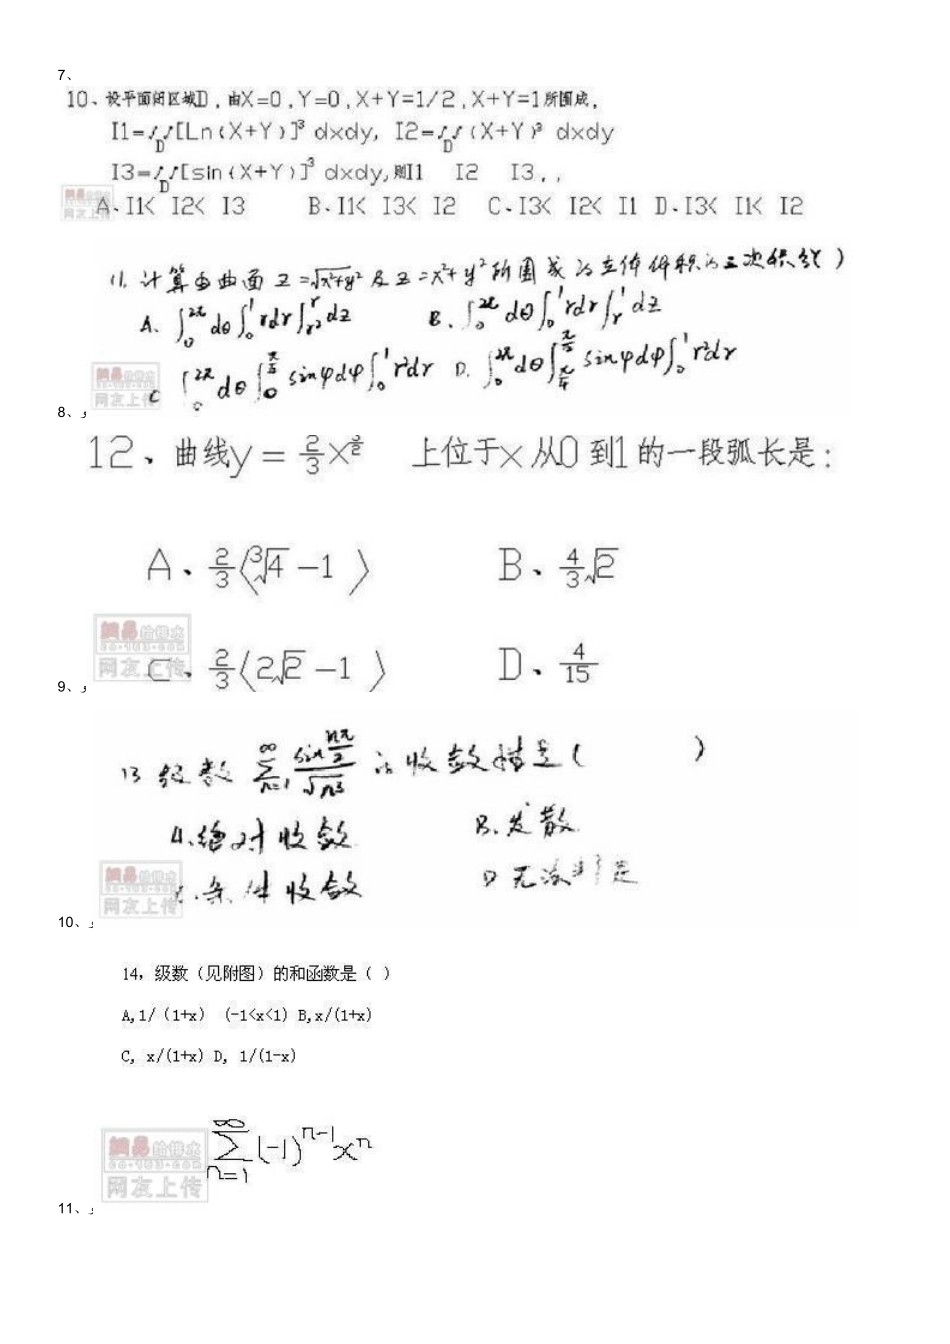 7、
10、设平面闭区域D，由X=0，Y=0，X+Y=1/2，X+Y=1所围成，
I1=∫∫[Ln(X+Y)]³ dxdy, I2=∫∫(X+Y)³ dxdy
D D
I3=∫∫[sin(X+Y)]³ dxdy,则I1 I2 I3，，
D
A、I1< I2< I3 B、I1< I3< I2 C、I3< I2< I1 D、I3< I1< I2
11. 计算由曲面 z=√x²+y² 及 z=x²+y² 所围成的立体体积的三次积分( )
A. ∫₀^2π dθ∫₀^1 rdr∫_r²^r dz B. ∫₀^2π dθ∫₀^1 rdr∫_r^1 dz
C ∫₀^2π dθ∫₀^π/2 sinφdφ∫₀^1 r²dr D. ∫₀^2π dθ∫_π/4^π/2 sinφdφ∫₀^1 r²dr
網易给排水
co·163·com
网友上传
8、
12、曲线y = 2/3 x^3/2 上位于x从0到1的一段弧长是：
A、2/3(∛4 −1 ) B、4/3√2
C、2/3(2√2 −1 ) D、4/15
網易给排水
co·163·com
网友上传
9、
13 级数 ∑_n=1^∞ sin nπ/2 / √n³ 的收敛情是( )
A.绝对收敛 B.发散
C.条件收敛 D 无法判定
網易给排水
co·163·com
网友上传
10、
14, 级数（见附图）的和函数是（ ）
A,1/（1+x） (-1<x<1) B,x/(1+x)
C, x/(1+x) D, 1/(1-x)
∑_n=1^∞ (-1)^n-1 x^n
網易给排水
co·163·com
网友上传
11、